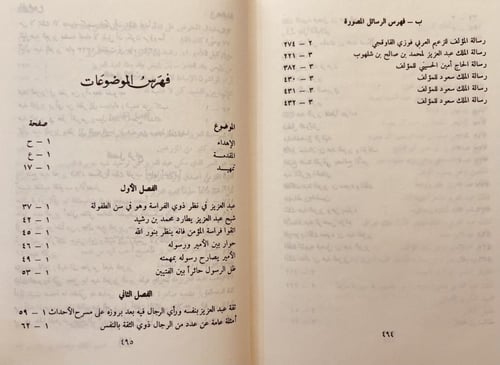 ب – فهرس الرسائل المصورة
رسالة المؤلف للزعيم العربي فوزي القاوقجي ٢ – ٢٧٤
رسالة الملك عبد العزيز لمحمد بن صالح بن شلهوب ٣ – ٢٢١
رسالة الحاج أمين الحسيني للمؤلف ٣ – ٣٨٢
رسالة الملك سعود للمؤلف ٣ – ٤٣٠
رسالة الملك سعود للمؤلف ٣ – ٤٣١
رسالة الملك سعود للمؤلف ٣ – ٤٣٢
٤٩٤
فهرس الموضوعات
الموضوع صفحة
الإهداء ١ – ح
المقدمة ١ – غ
تمهيد ١ – ١٧
الفصل الأول
عبد العزيز في نظر ذوي الفراسة وهو في سن الطفولة ١ – ٣٧
شبح عبد العزيز يطارد محمد بن رشيد ١ – ٤٢
اتقوا فراسة المؤمن فانه ينظر بنور الله ١ – ٤٥
حوار بين الأمير ورسوله ١ – ٤٦
الأمير يصارح رسوله بمهمته ١ – ٤٩
ظل الرسول حائراً بين الفتيين ١ – ٥٣
الفصل الثاني
ثقة عبد العزيز بنفسه ورأي الرجال فيه بعد بروزه على مسرح الأحداث ١ – ٥٩
أمثلة عامة عن عدد من الرجال ذوي الثقة بالنفس ١ – ٦٢
٤٩٥